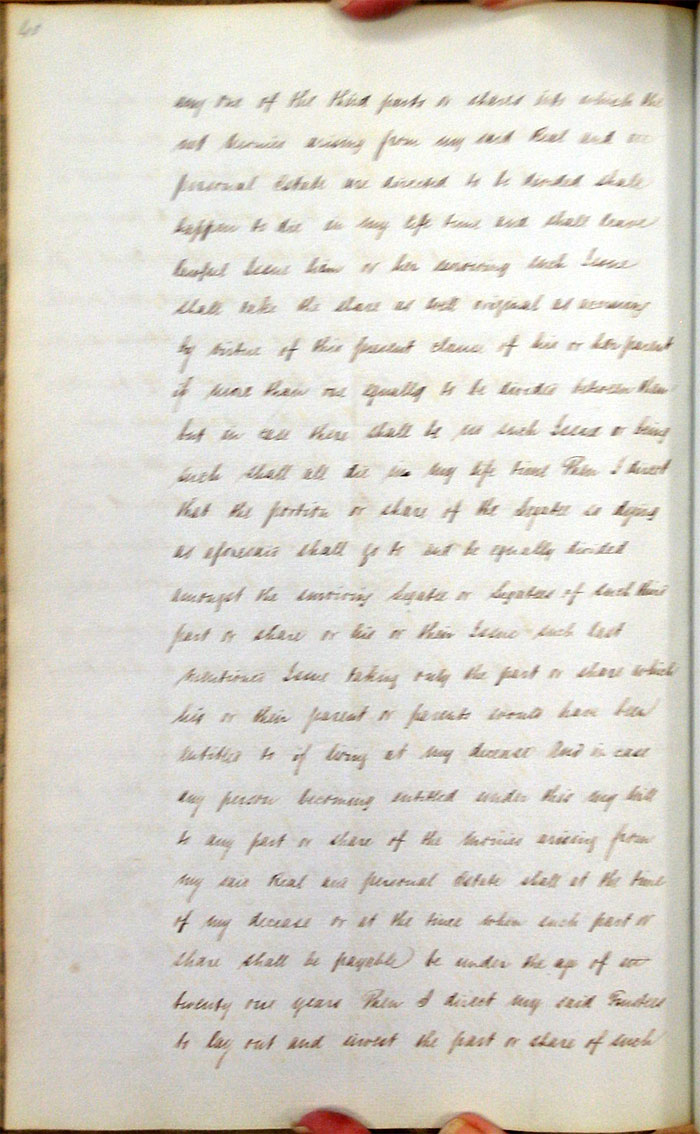 any one of the third parts or shares into which the
net monies arising from my said Real and
personal Estate are directed to be divided shall
happen to die in my life time and shall leave
lawful Issue him or her surviving such Issue
shall take the share as well original as accruing
by virtue of this present clause of his or her parent
if more than one equally to be divided between them
but in case there shall be no such Issue or being
such shall all die in my life time Then I direct
that the portion or share of the Legatee so dying
as aforesaid shall go to and be equally divided
amongst the surviving Legatee or Legatees of such third
part or share or his or their Issue such last
mentioned Issue taking only the part or share which
his or their parent or parents would have been
entitled to if living at my decease And in case
any person becoming entitled under this my Will
to any part or share of the monies arising from
my said Real and personal Estate shall at the time
of my decease or at the time when such part or
share shall be payable be under the age of
twenty one years Then I direct my said Trustees
to lay out and invest the part or share of such